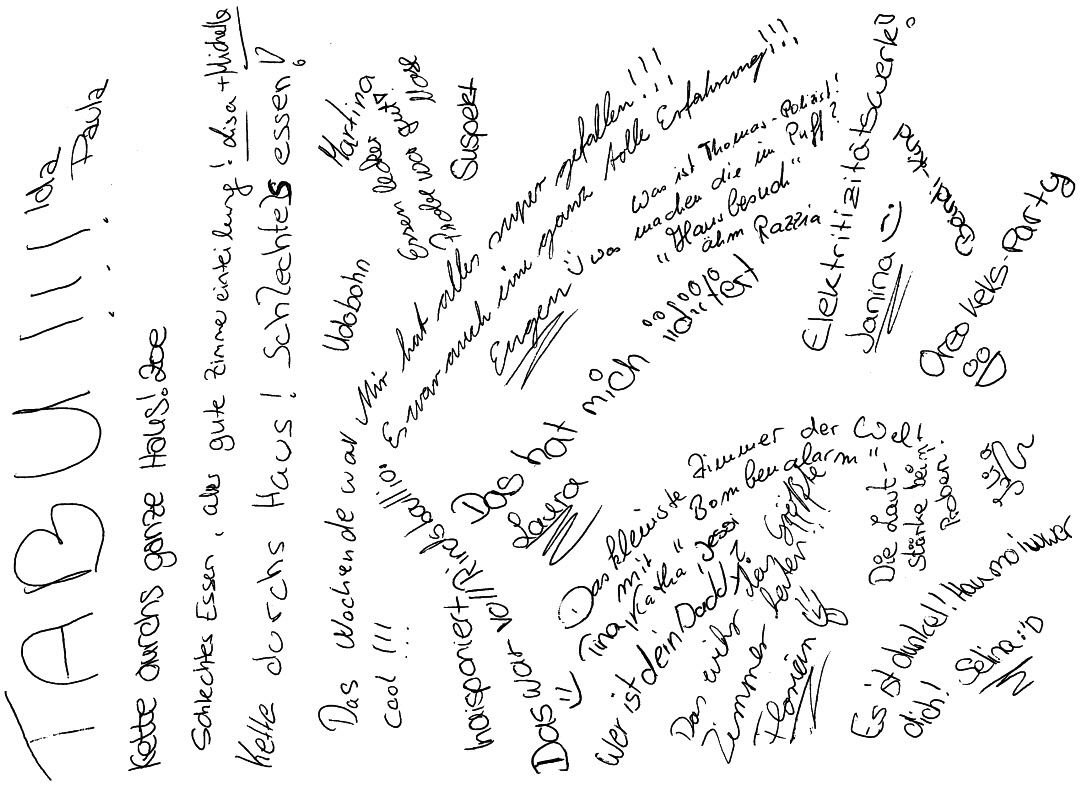 TABU !!! Ida
Paula
Kette durchs ganze Haus! Zoe
Schlechtes Essen, alles gute Zimmereinteilung! Lisa + Michelle
Kette durchs Haus! Schlechtes essen!
Das Wochende war
cool !!!
Udobohn
Martina
Essen lecker
Probe war gut
Nase
Suspekt
Mir hat alles super gefallen!!!
Es war auch eine ganz tolle Erfahrung!!!
Eugen
Was ist Thomas - Polizist!
was machen die im Puff?
"Hausbesuch"
ähm Razzia
haisponiert
Das war voll Rindsballig
Das hat mich iritiert
Laura
Elektritizitätswerk!
Janina :)
Oreo Keks-Party
Das kleinste Zimmer der Welt
mit "Bombenalarm"
Tina, Katha, Jessi
Wer ist dein Daddy?
Das wihr Zimmer
Größte
Florian
Die Laut-
stärke beim
Proben!
Es ist dunkel! Hau
dich!
Selina :D